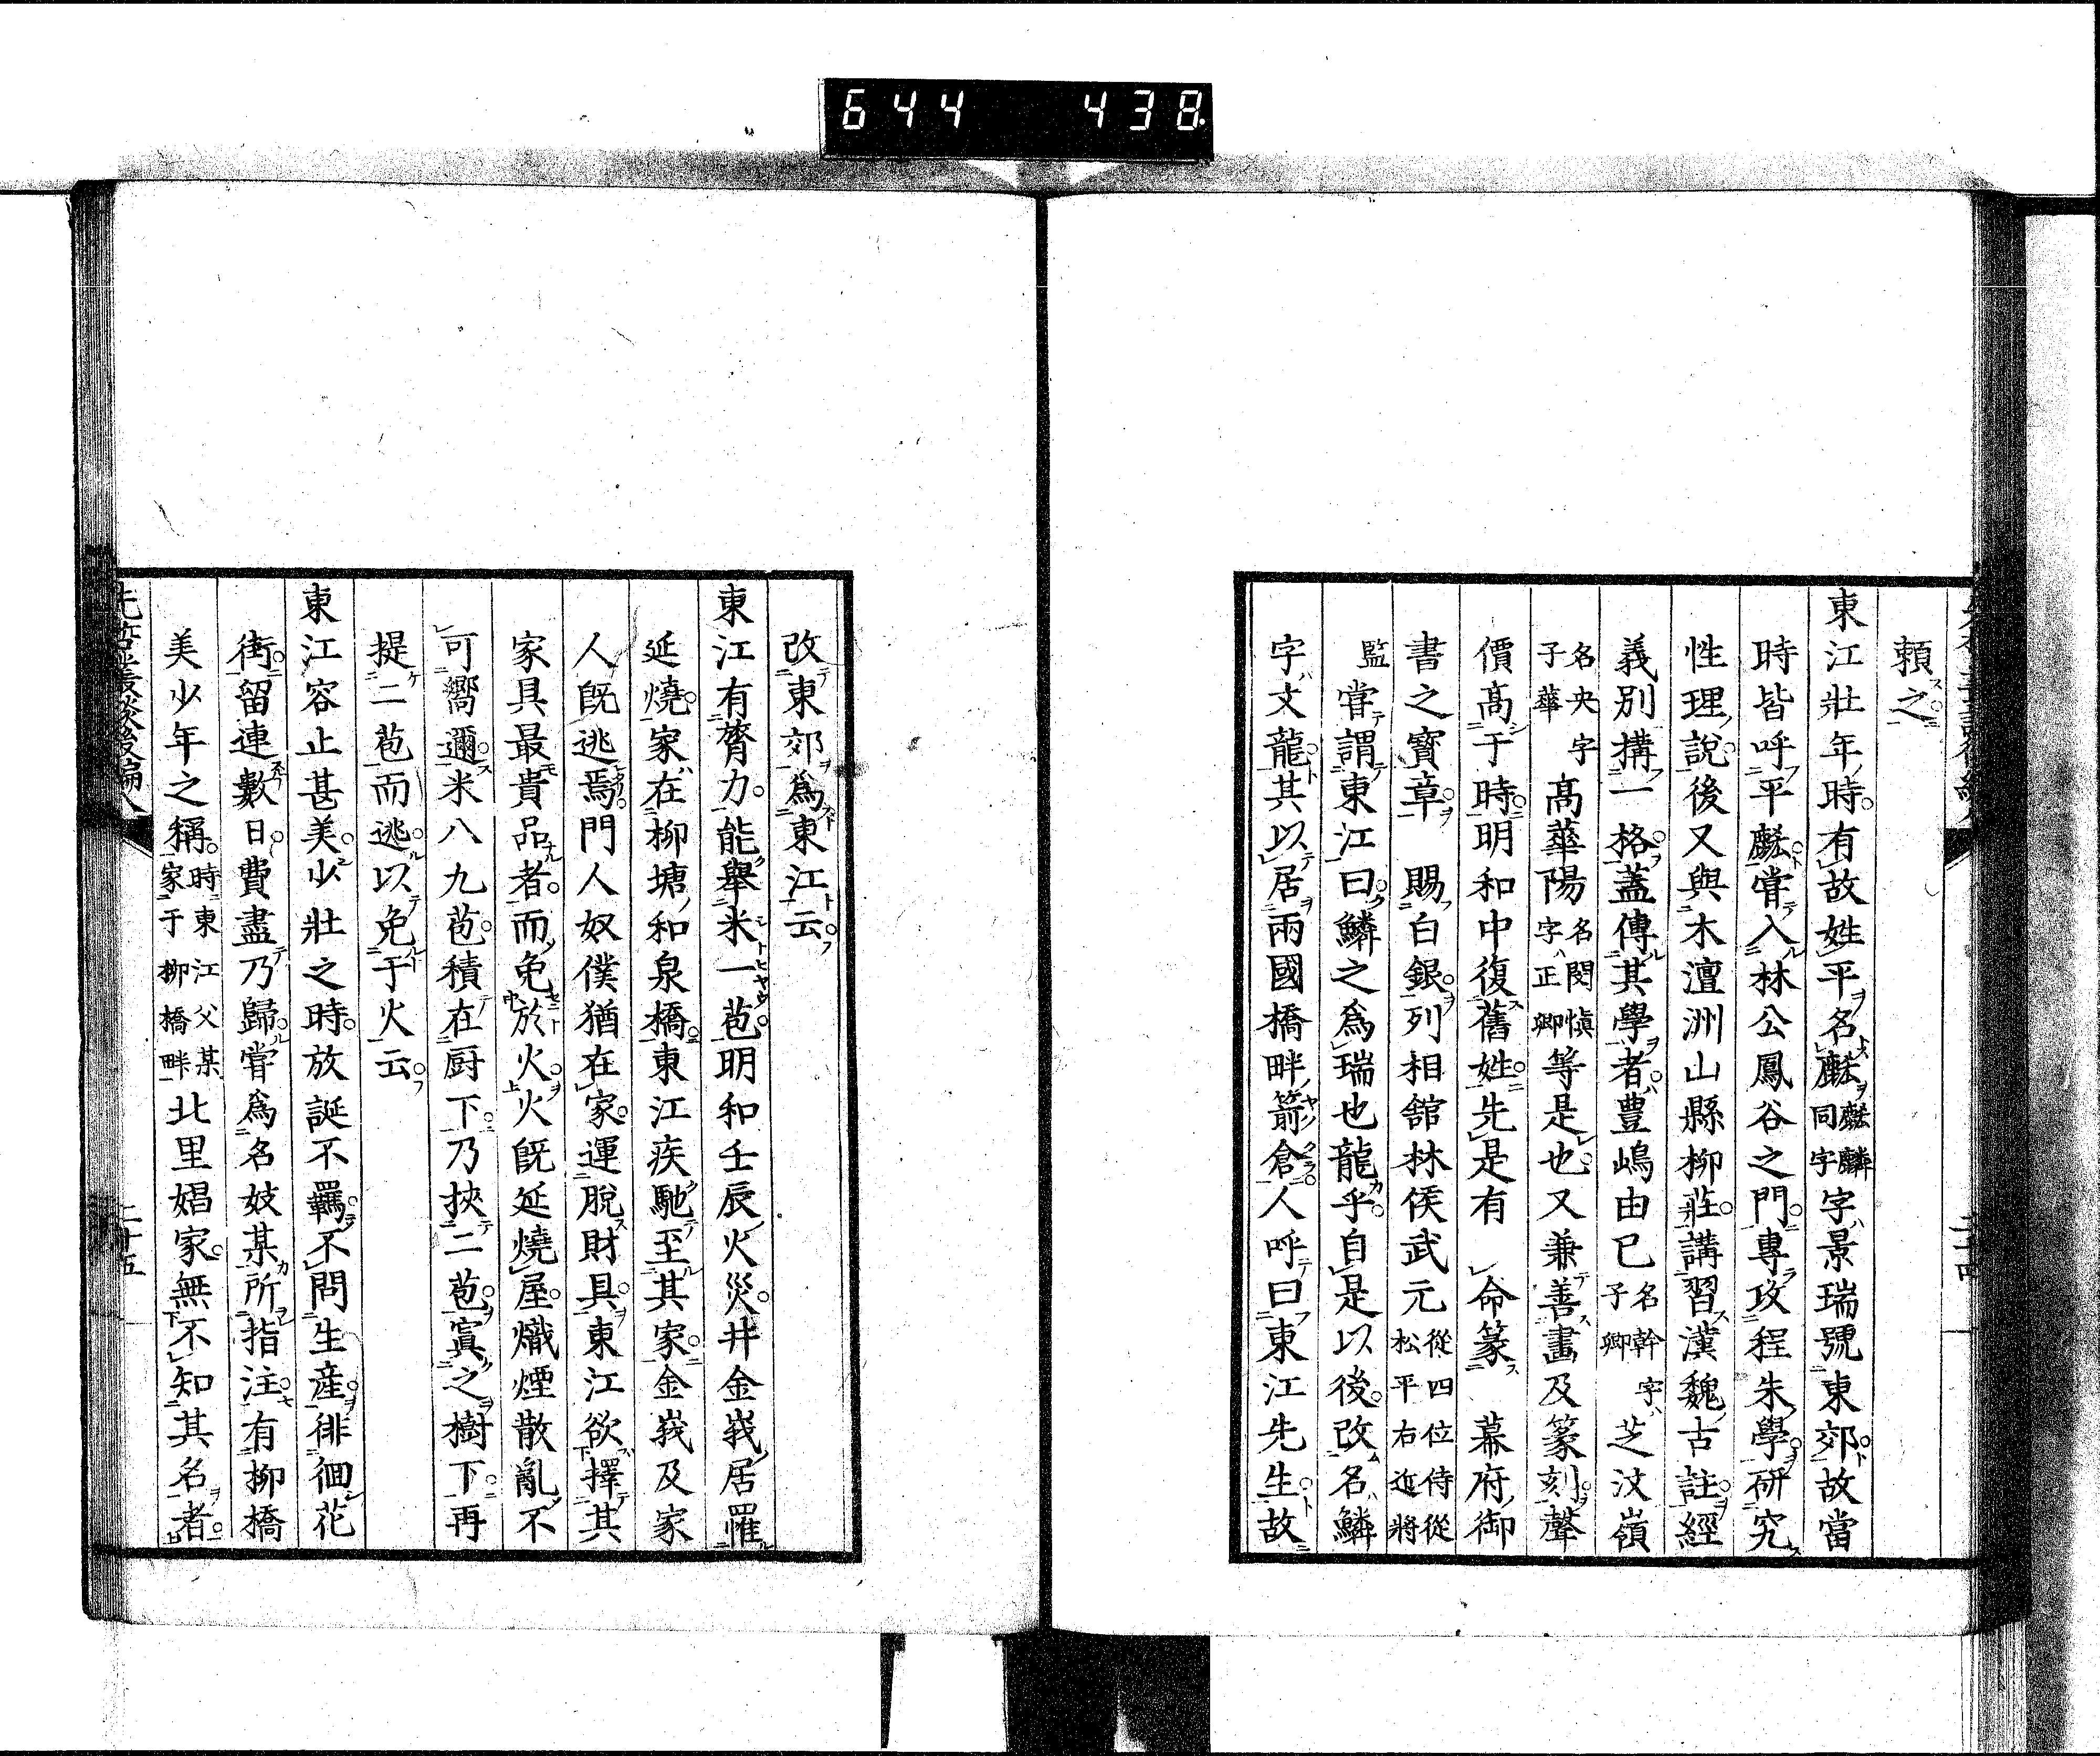 644 438
賴之
東江壯年時有故姓平名麩麩麟同字字景瑞號東郊故當
時皆呼平麩嘗入林公鳳谷之門專攻程朱學研究
性理說後又與木澶洲山縣柳莊講習漢魏古註經
義別搆一格蓋傳其學者豊嶋由已名幹字子卿芝汶嶺
名央字子華高華陽名閔愼字正卿等是也又兼善畫及篆刻聲
價高于時明和中復舊姓先是有命篆幕府御
書之寳章賜白銀列相舘林侯武元從四位侍從松平右近將
監嘗謂東江曰鱗之爲瑞也龍乎自是以後改名鱗
字文龍其以居兩國橋畔箭倉人呼曰東江先生故
改東郊爲東江云
東江有膂力能舉米一苞明和壬辰火災井金峩居罹
延燒家在柳塘和泉橋東江疾馳至其家金峩及家
人既逃焉門人奴僕猶在家運脫財具東江欲擇其
家具最貴品者而免於火火既延燒屋熾煙散亂不
可嚮邇米八九苞積在厨下乃挾二苞寘之樹下再
提二苞而逃以免于火云
東江容止甚美少壯之時放誕不羈不問生産徘徊花
街留連數日費盡乃歸嘗爲名妓某所指注有柳橋
美少年之稱時東江父某家于柳橋畔北里娼家無不知其名者
先哲叢談後編八
二十五